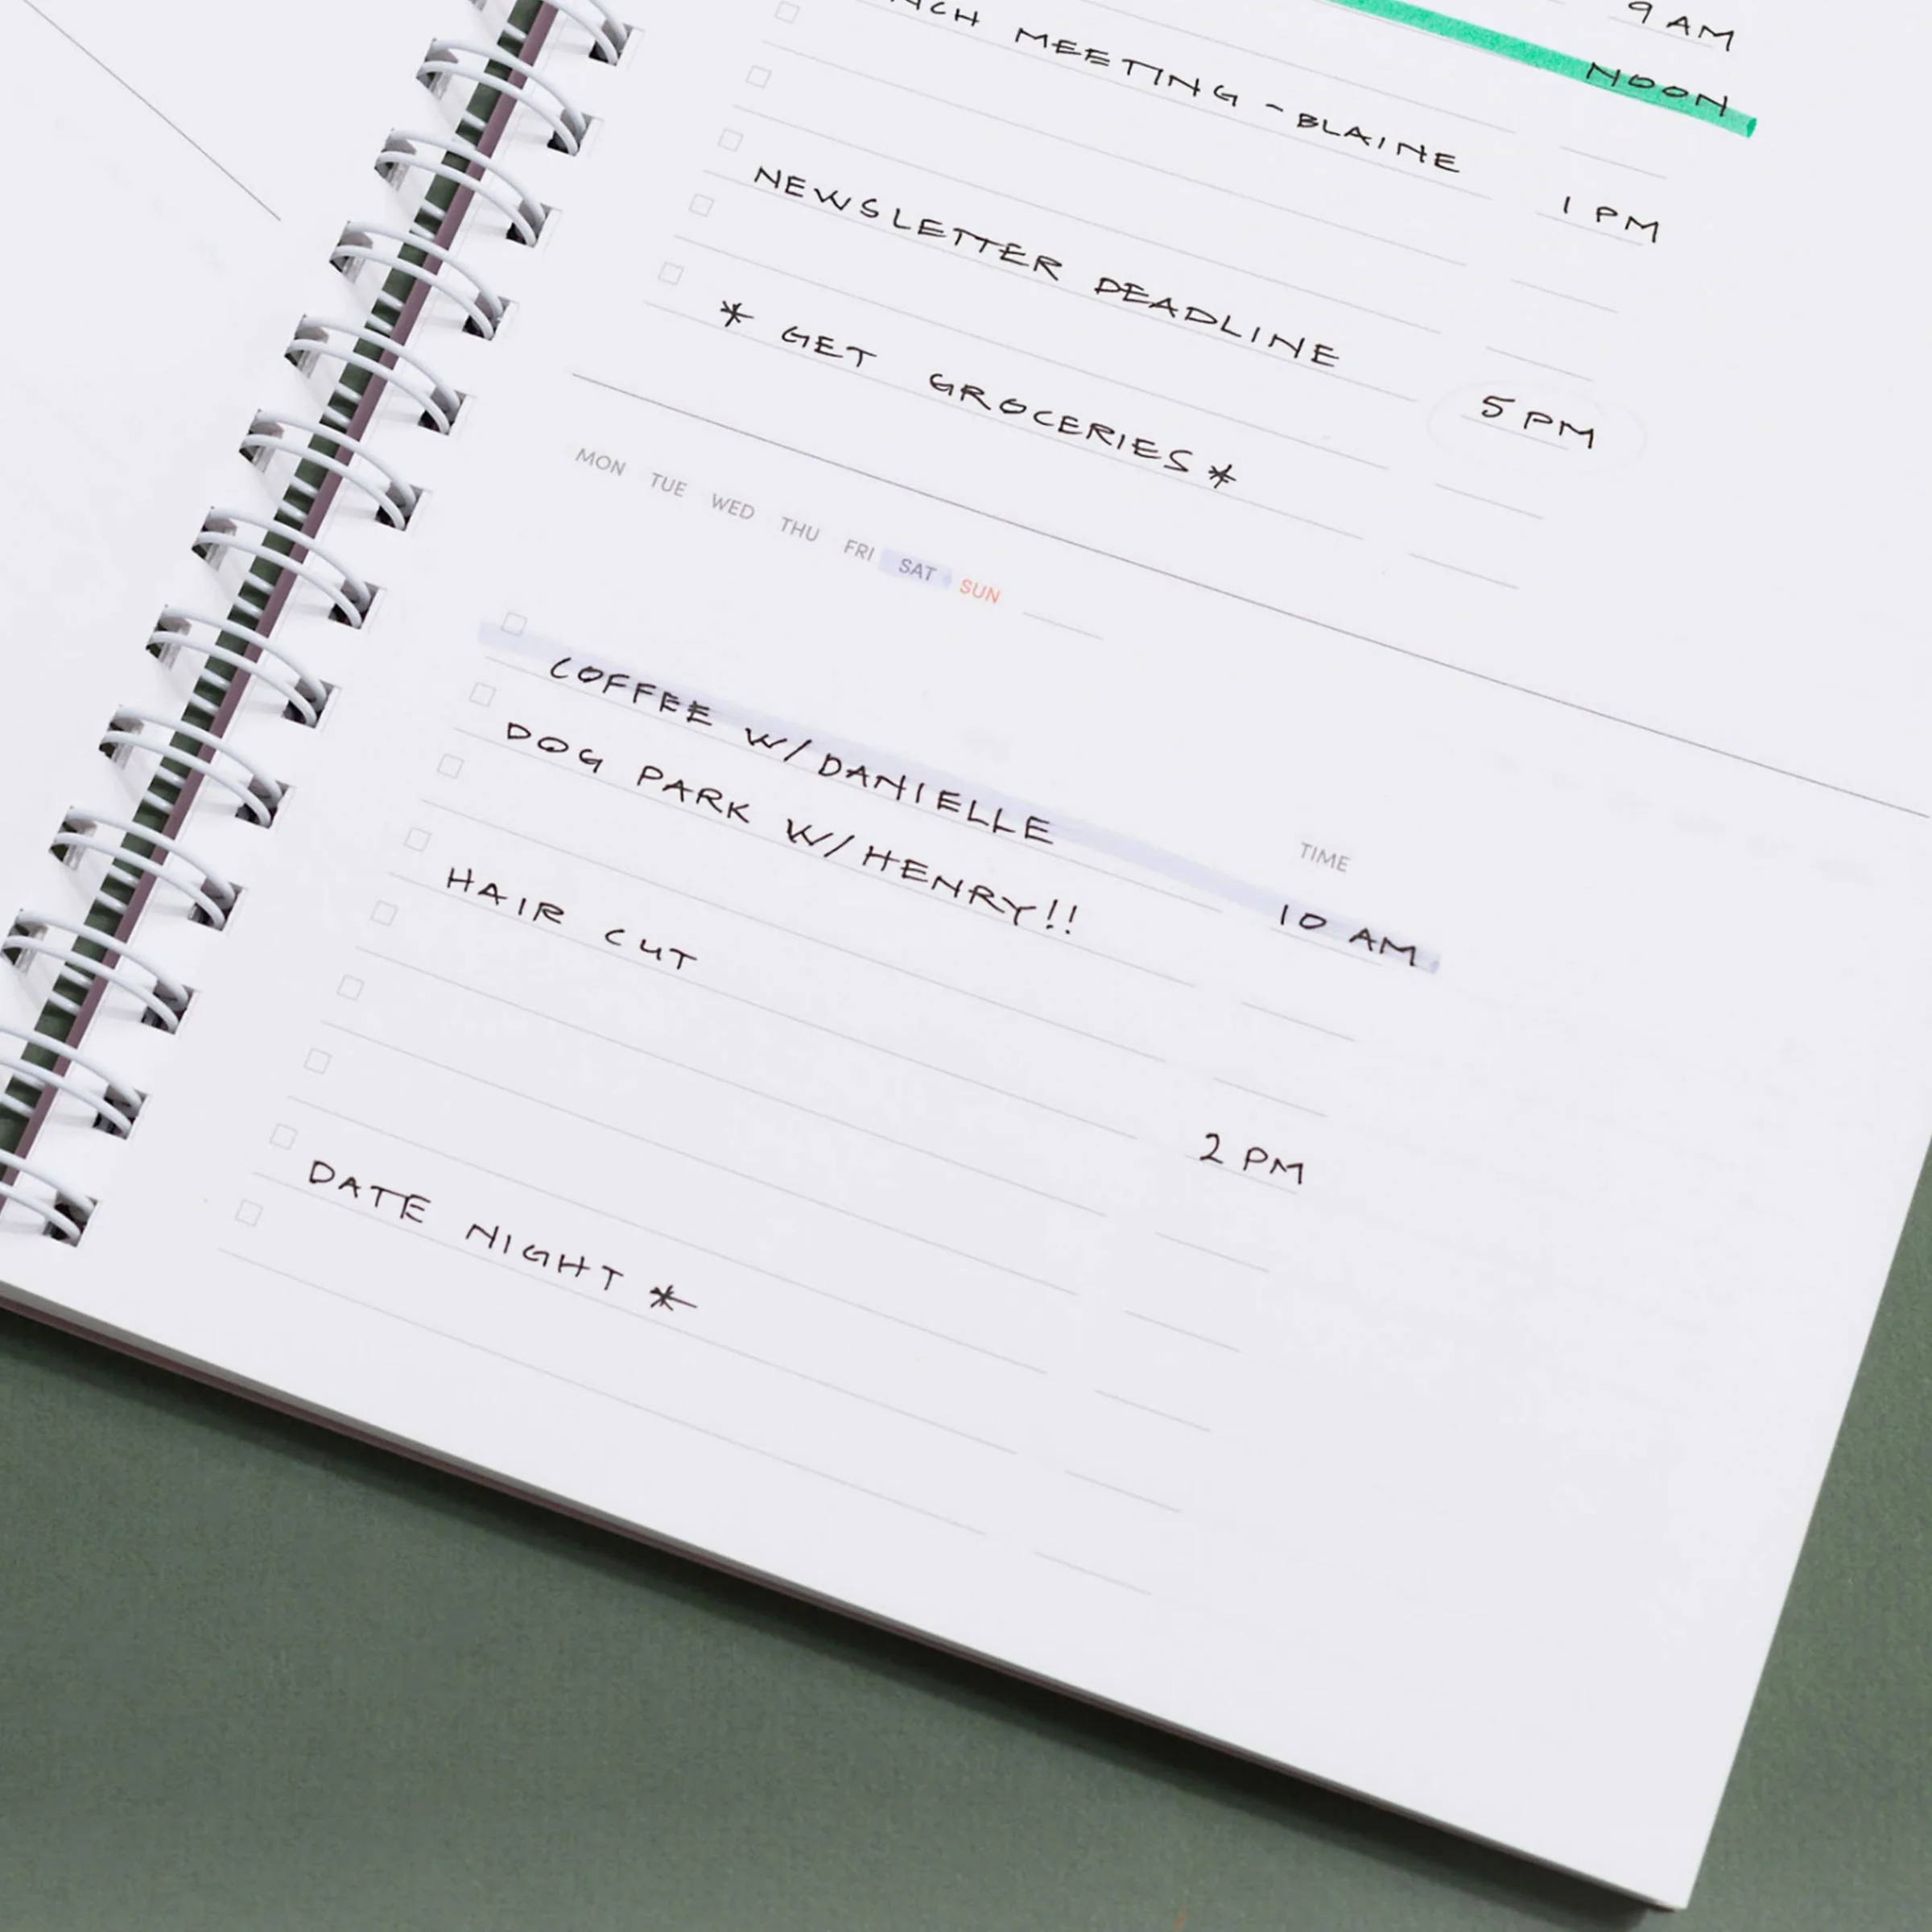 9 AM
NOON
NCH MEETING - BLAINE 1 PM
NEWSLETTER DEADLINE 5 PM
* GET GROCERIES *
MON TUE WED THU FRI SAT SUN
TIME
COFFEE W/ DANIELLE 10 AM
DOG PARK W/ HENRY!!
HAIR CUT 2 PM
DATE NIGHT *